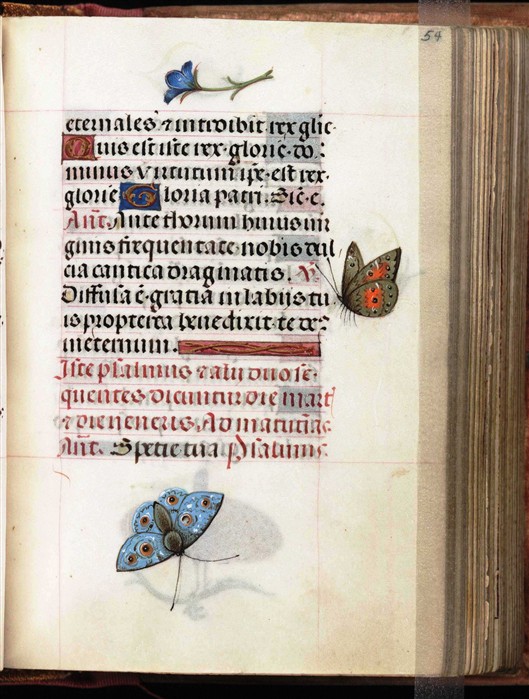 54
eternales ⁊ introibit rex glie·
Quis est iste rex· glorie· do:
minus virtutum ip̄e· est rex·
glorie Gloria patri. Sic·e.
Ant̄. Ante thorum huius vir
ginis frequentate· nobis dul
cia cantica dragmatis. V̷
Diffusa ē· gratia in labijs tu
is propterea benedixit· te deꝰ
in eternum.
Iste psalmus ⁊ alij duo se·
quentes dicuntur die mart̄
⁊ die veneris. Ad matutinas
Ant̄. Specie tua psalmus